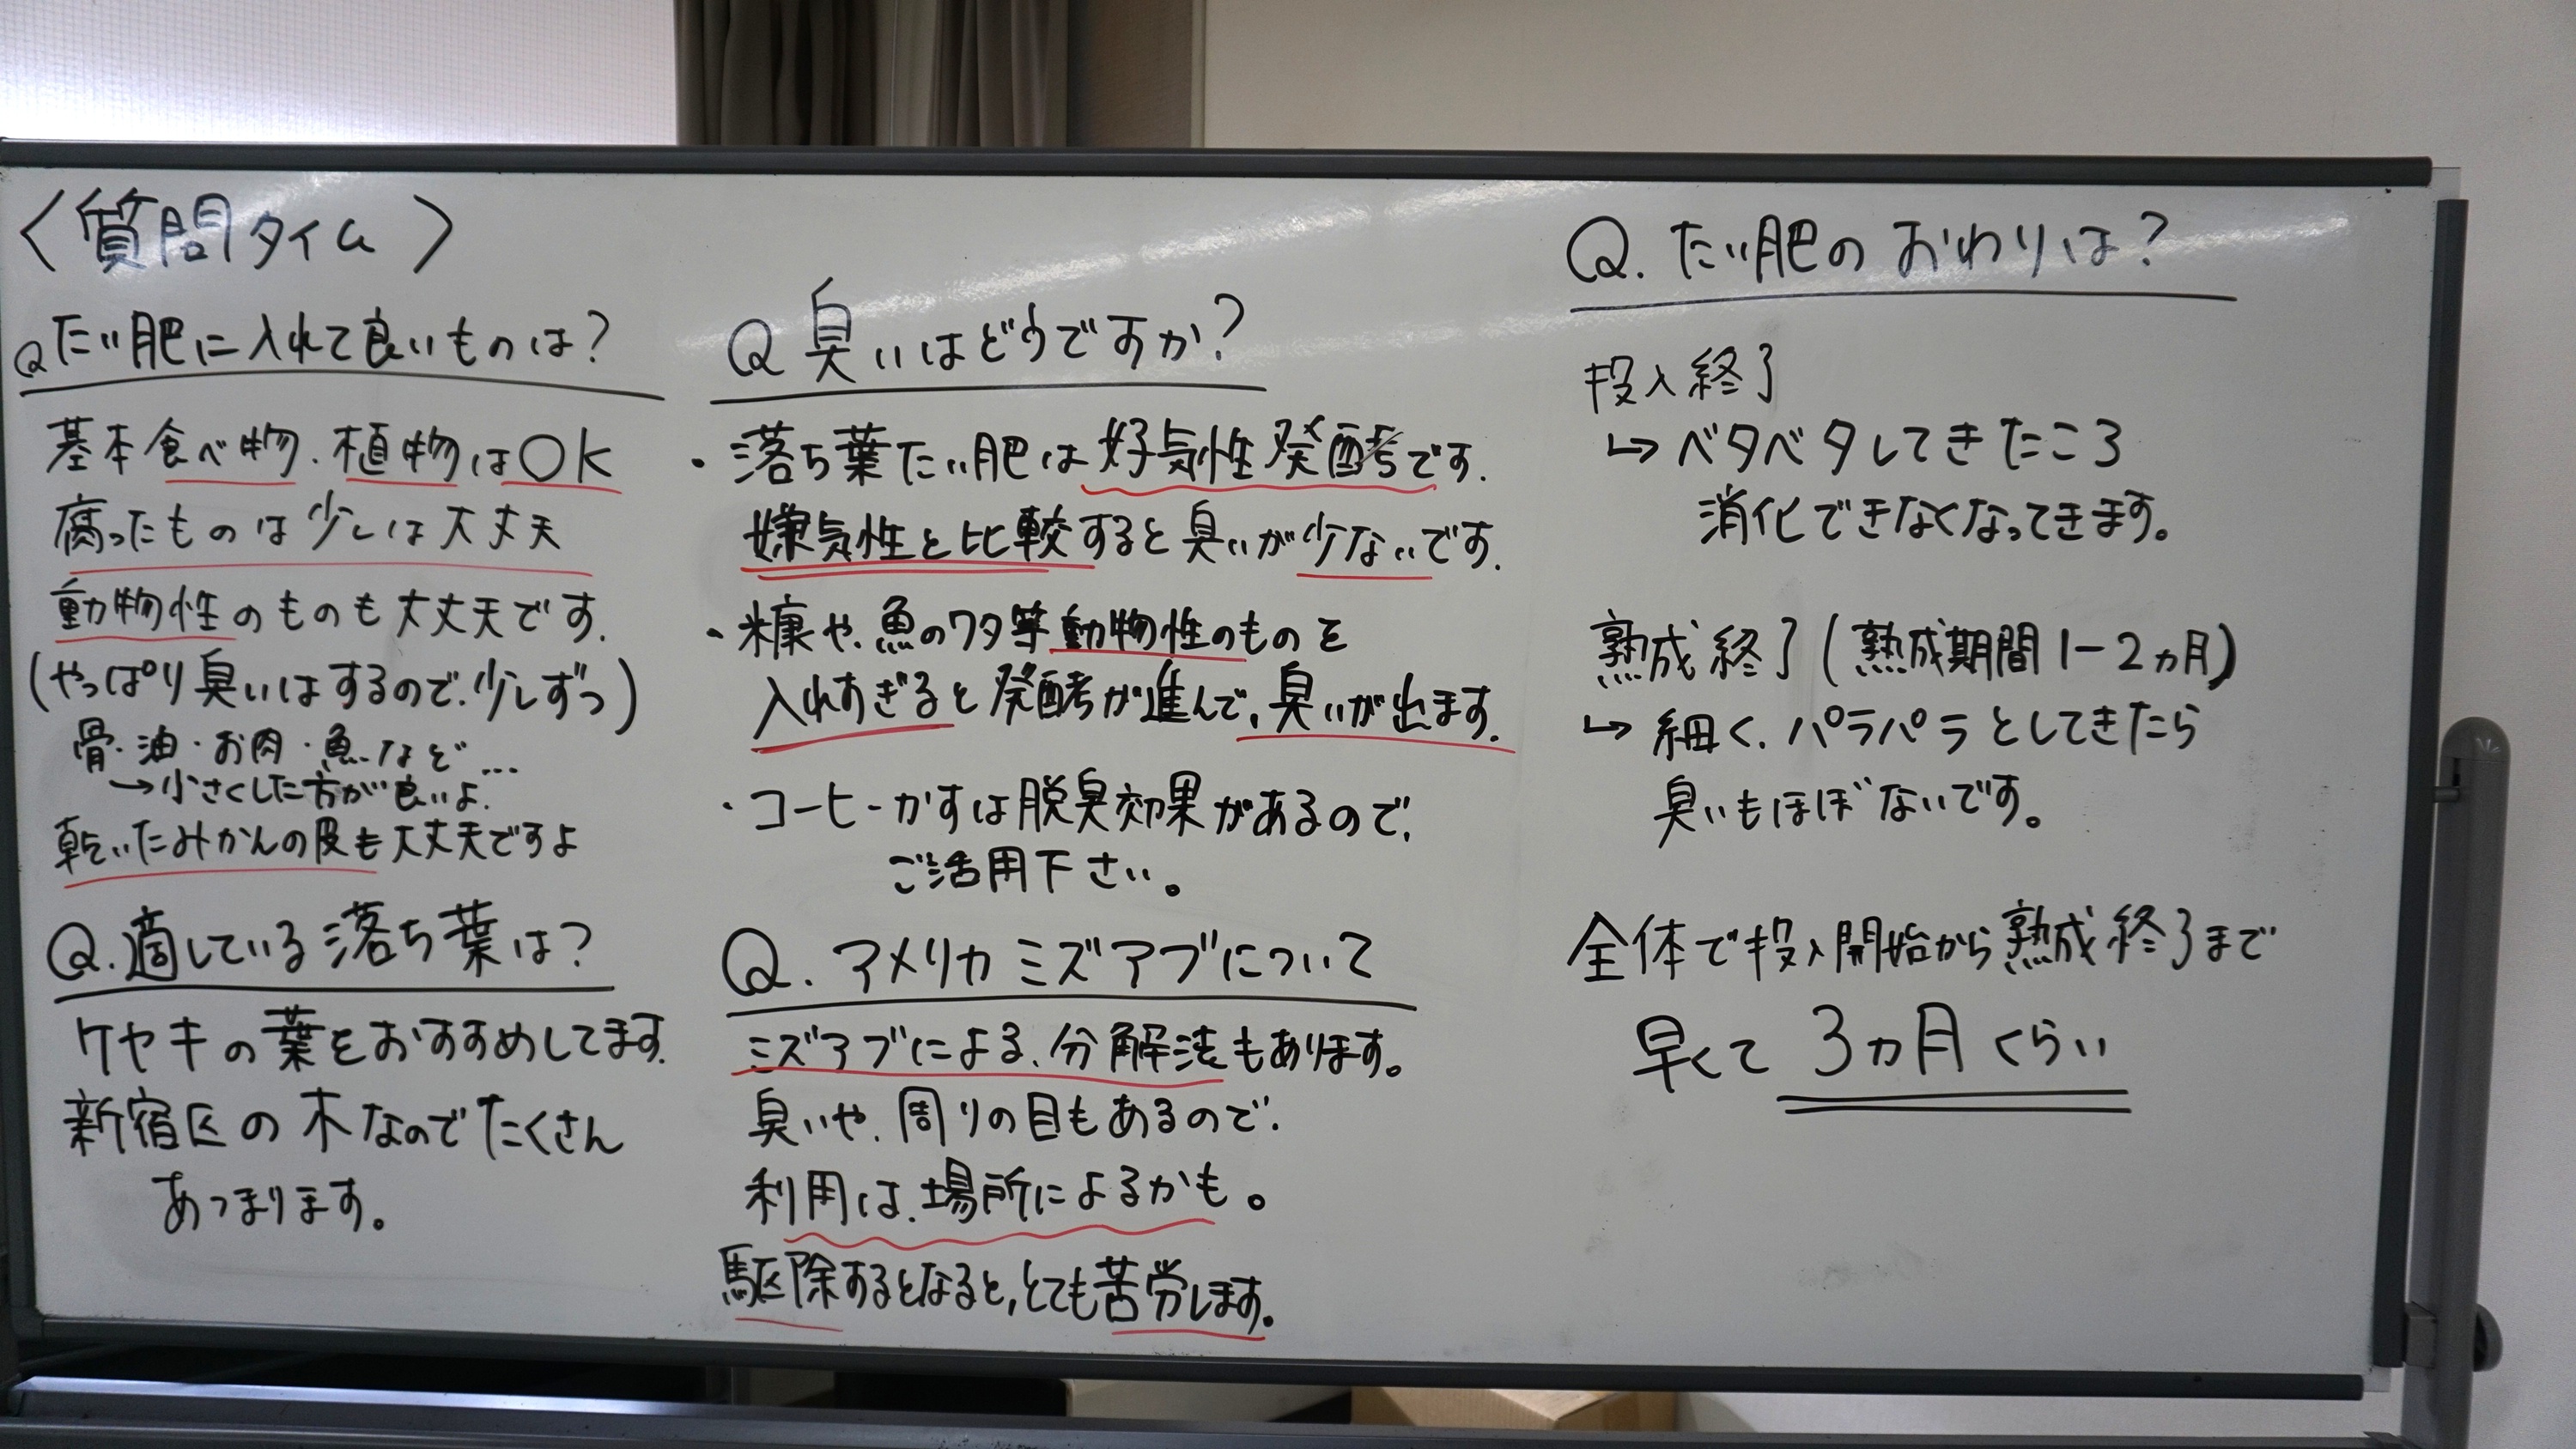 〈質問タイム〉
Qたい肥に入れて良いものは?
基本食べ物.植物はOK
腐ったものは少しは大丈夫
動物性のものも大丈夫です.
(やっぱり臭いはするので.少しずつ)
骨・油・お肉・魚など...
→小さくした方が良いよ.
乾いたみかんの皮も大丈夫ですよ
Q.適している落ち葉は?
ケヤキの葉をおすすめしてます.
新宿区の木なのでたくさん
あつまります。
Q 臭いはどうですか?
・落ち葉たい肥は好気性発酵です.
嫌気性と比較すると臭いが少ないです.
・糠や.魚のワタ等動物性のものを
入れすぎると発酵が進んで,臭いが出ます.
・コーヒーかすは脱臭効果があるので,
ご活用下さい。
Q.アメリカミズアブについて
ミズアブによる.分解法もあります。
臭いや.周りの目もあるので.
利用は.場所によるかも。
駆除するとなると,とても苦労します。
Q.たい肥のおわりは?
投入終了
↳ベタベタしてきたころ
消化できなくなってきます。
熟成終了(熟成期間1-2ヵ月)
↳細く.パラパラとしてきたら
臭いもほぼないです。
全体で投入開始から熟成終了まで
早くて3ヵ月くらい